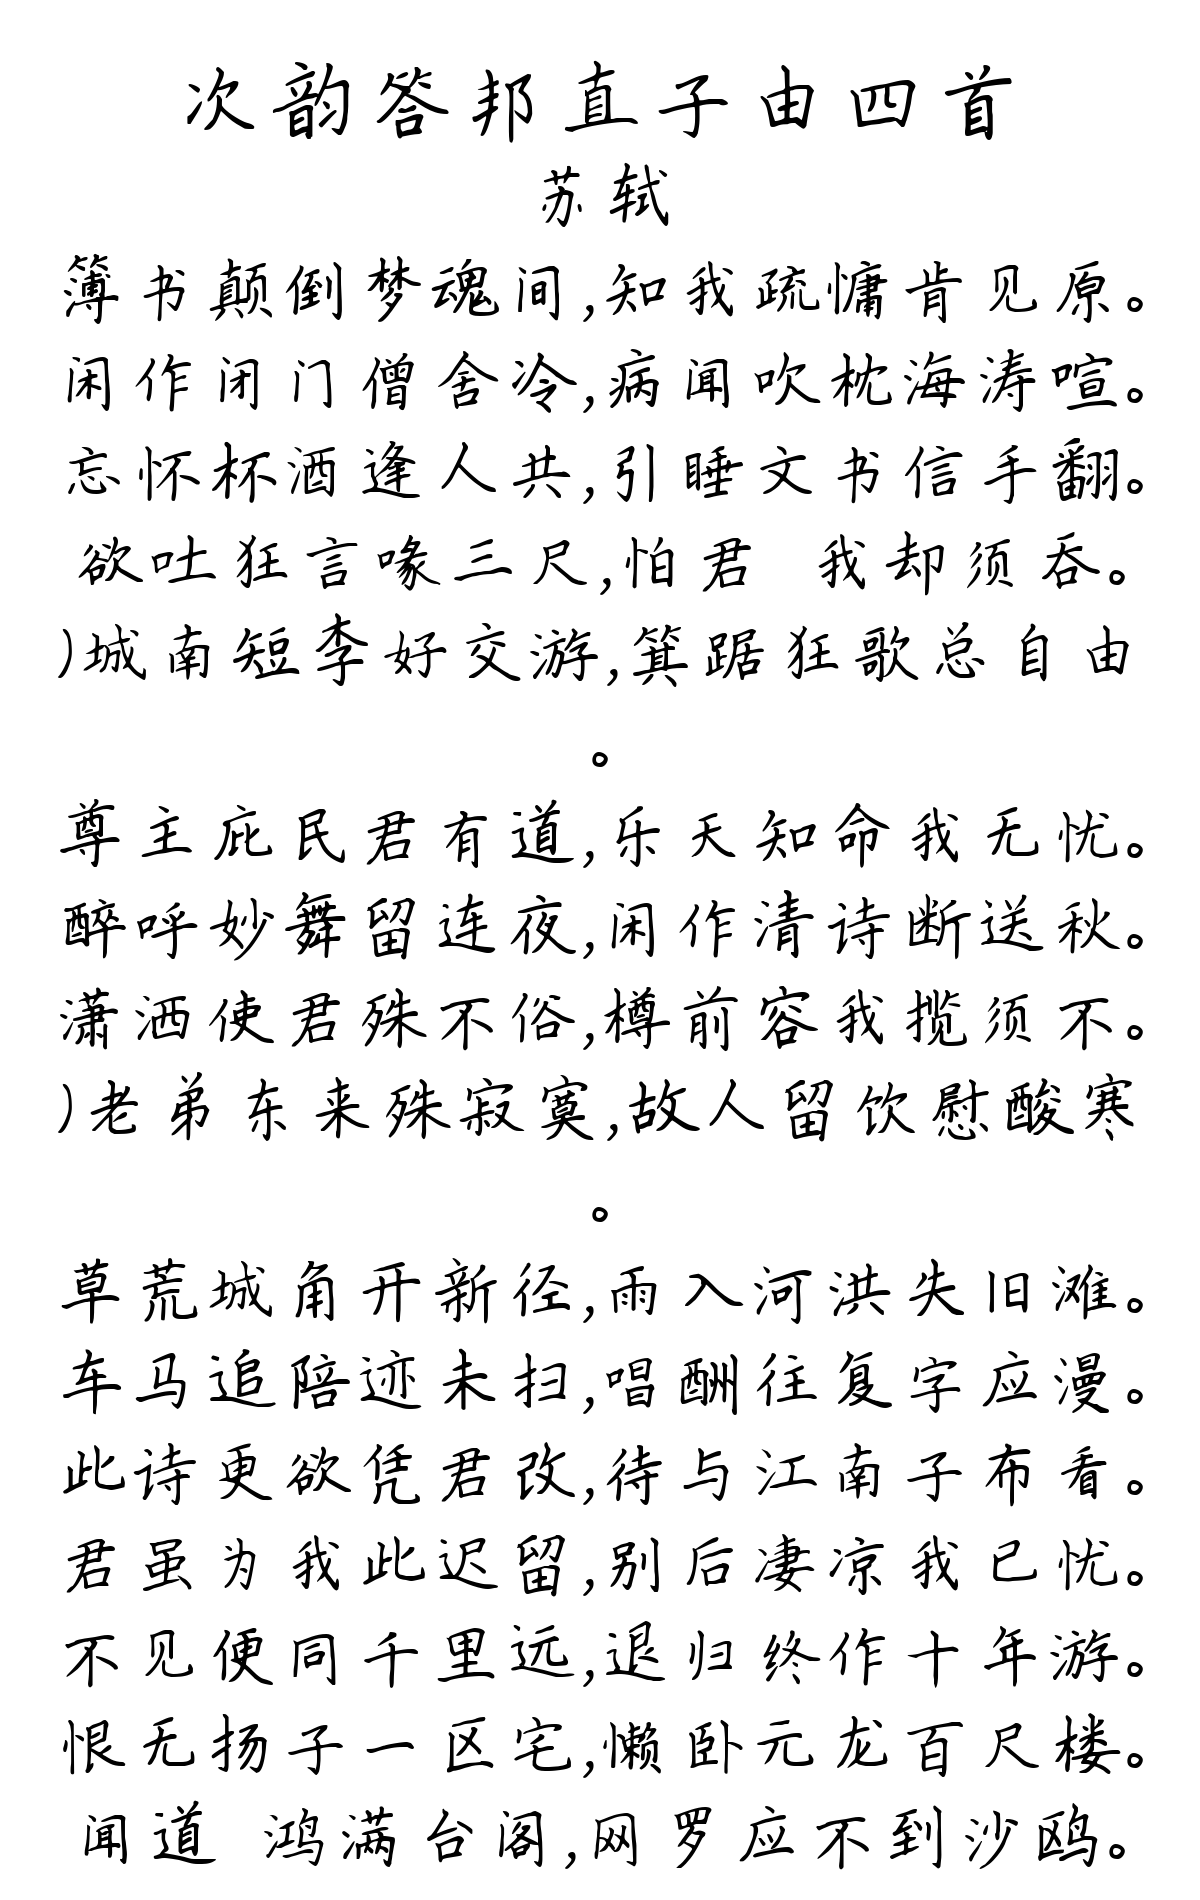 次韵答邦直子由四首
苏轼
簿书颠倒梦魂间,知我疏慵肯见原。
闲作闭门僧舍冷,病闻吹枕海涛喧。
忘怀杯酒逢人共,引睡文书信手翻。
欲吐狂言喙三尺,怕君 我却须吞。
)城南短李好交游,箕踞狂歌总自由
。
尊主庇民君有道,乐天知命我无忧。
醉呼妙舞留连夜,闲作清诗断送秋。
潇洒使君殊不俗,樽前容我揽须不。
)老弟东来殊寂寞,故人留饮慰酸寒
。
草荒城角开新径,雨入河洪失旧滩。
车马追陪迹未扫,唱酬往复字应漫。
此诗更欲凭君改,待与江南子布看。
君虽为我此迟留,别后凄凉我已忧。
不见便同千里远,退归终作十年游。
恨无扬子一区宅,懒卧元龙百尺楼。
闻道 鸿满台阁,网罗应不到沙鸥。